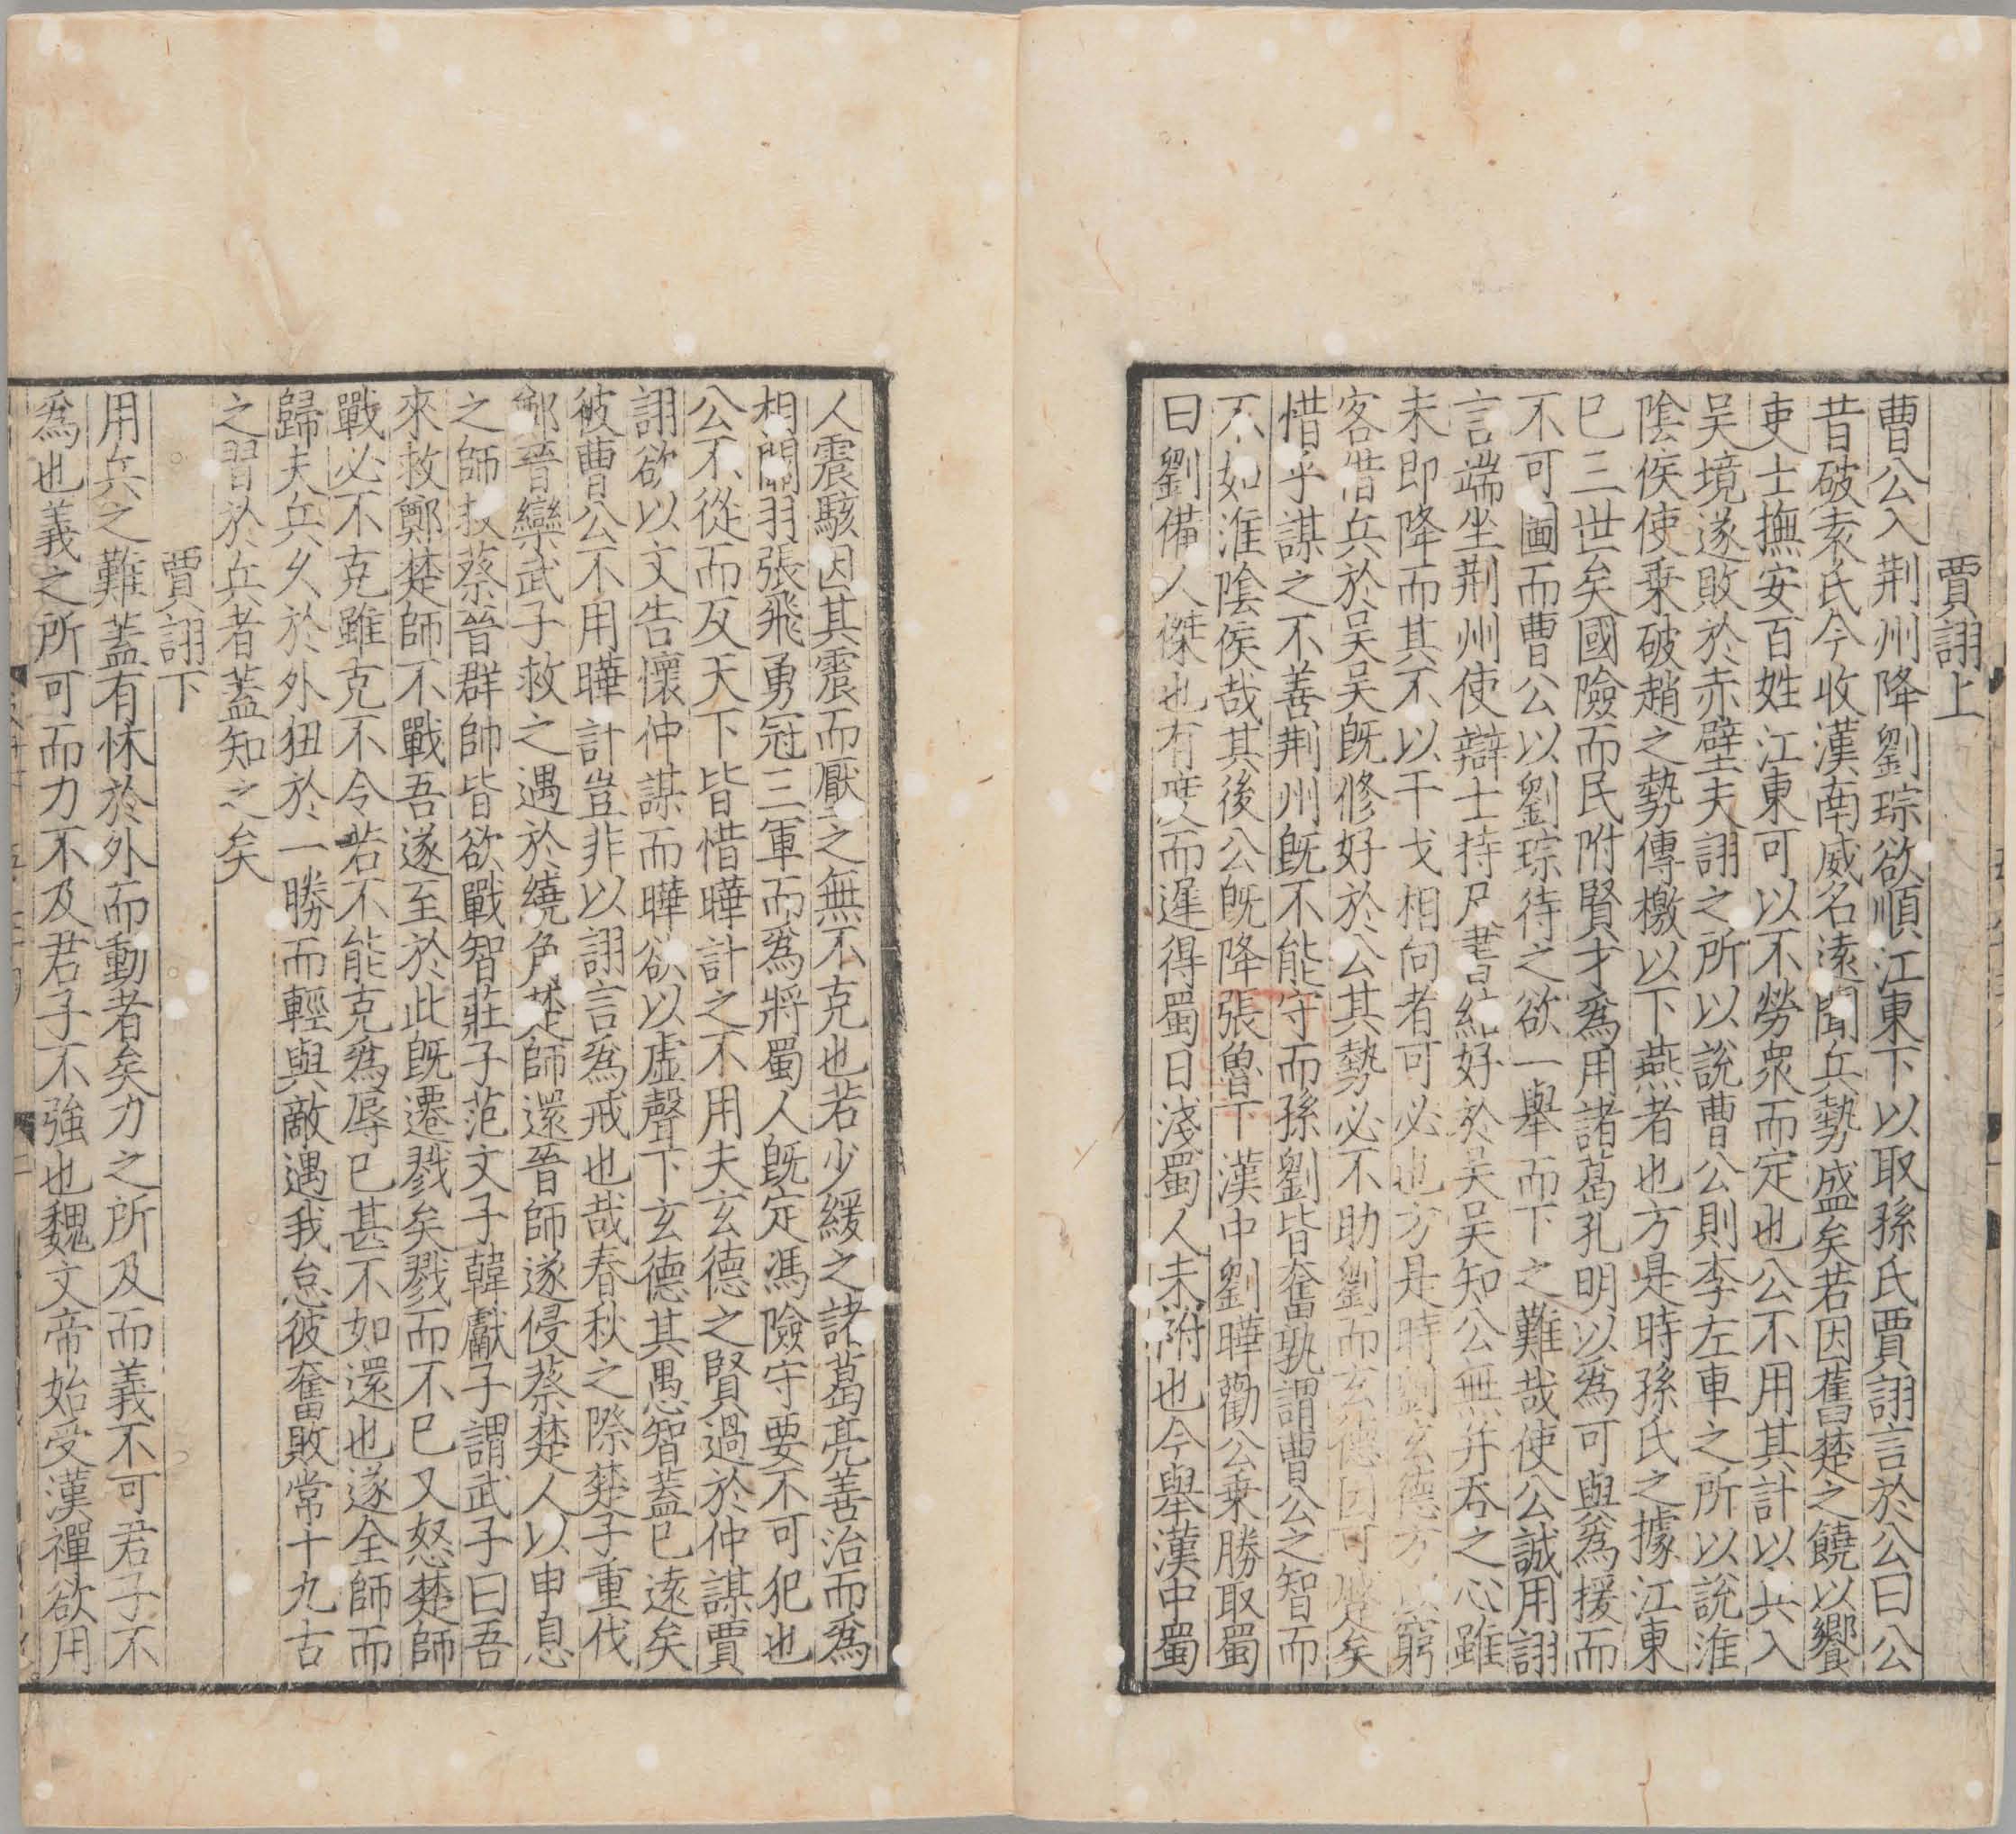 賈詡上
曹公入荆州降劉琮欲順江東下以取孫氏賈詡言於公曰公
昔破袁氏今收漢南威名遠聞兵勢盛矣若因舊楚之饒以饗
吏士撫安百姓江東可以不勞衆而定也公不用其計以兵入
吴境遂敗於赤壁夫詡之所以說曹公則李左車之所以說淮
陰侯使乗破趙之勢傳檄以下燕者也方是時孫氏之據江東
已三世矣國險而民附賢才爲用諸葛孔明以爲可與爲援而
不可圖而曹公以劉琮待之欲一舉而下之難哉使公誠用詡
言端坐荆州使辯士持尺書結好於吴吴知公無并吞之心雖
未即降而其不以干戈相向者可必也方是時劉玄德方以窮
客借兵於吴吴旣修好於公其勢必不助劉而玄德因可蹙矣
惜乎謀之不善荆州旣不能守而孫劉皆奮孰謂曹公之智而
不如淮陰侯哉其後公旣降張魯下漢中劉曄勸公乗勝取蜀
曰劉備人傑也有度而遲得蜀日淺蜀人未附也今舉漢中蜀
人震駭因其震而壓之無不克也若少緩之諸葛亮善治而爲
相關羽張飛勇冠三軍而爲將蜀人旣定馮險守要不可犯也
公不從而反天下皆惜曄計之不用夫玄德之賢過於仲謀賈
詡欲以文告懷仲謀而曄欲以虛聲下玄德其愚智蓋已遠矣
彼曹公不用曄計豈非以詡言爲戒也哉春秋之際楚子重伐
鄭晉欒武子救之遇於繞角楚師還晉師遂侵蔡楚人以申息
之師救蔡晉群帥皆欲戰智莊子范文子韓獻子謂武子曰吾
來救鄭楚師不戰吾遂至於此旣遷戮矣戮而不已又怒楚師
戰必不克雖克不令若不能克爲辱已甚不如還也遂全師而
歸夫兵久於外狃於一勝而輕與敵遇我怠彼奮敗常十九古
之習於兵者蓋知之矣
賈詡下
用兵之難蓋有怵於外而動者矣力之所及而義不可君子不
爲也義之所可而力不及君子不強也魏文帝始受漢禪欲用